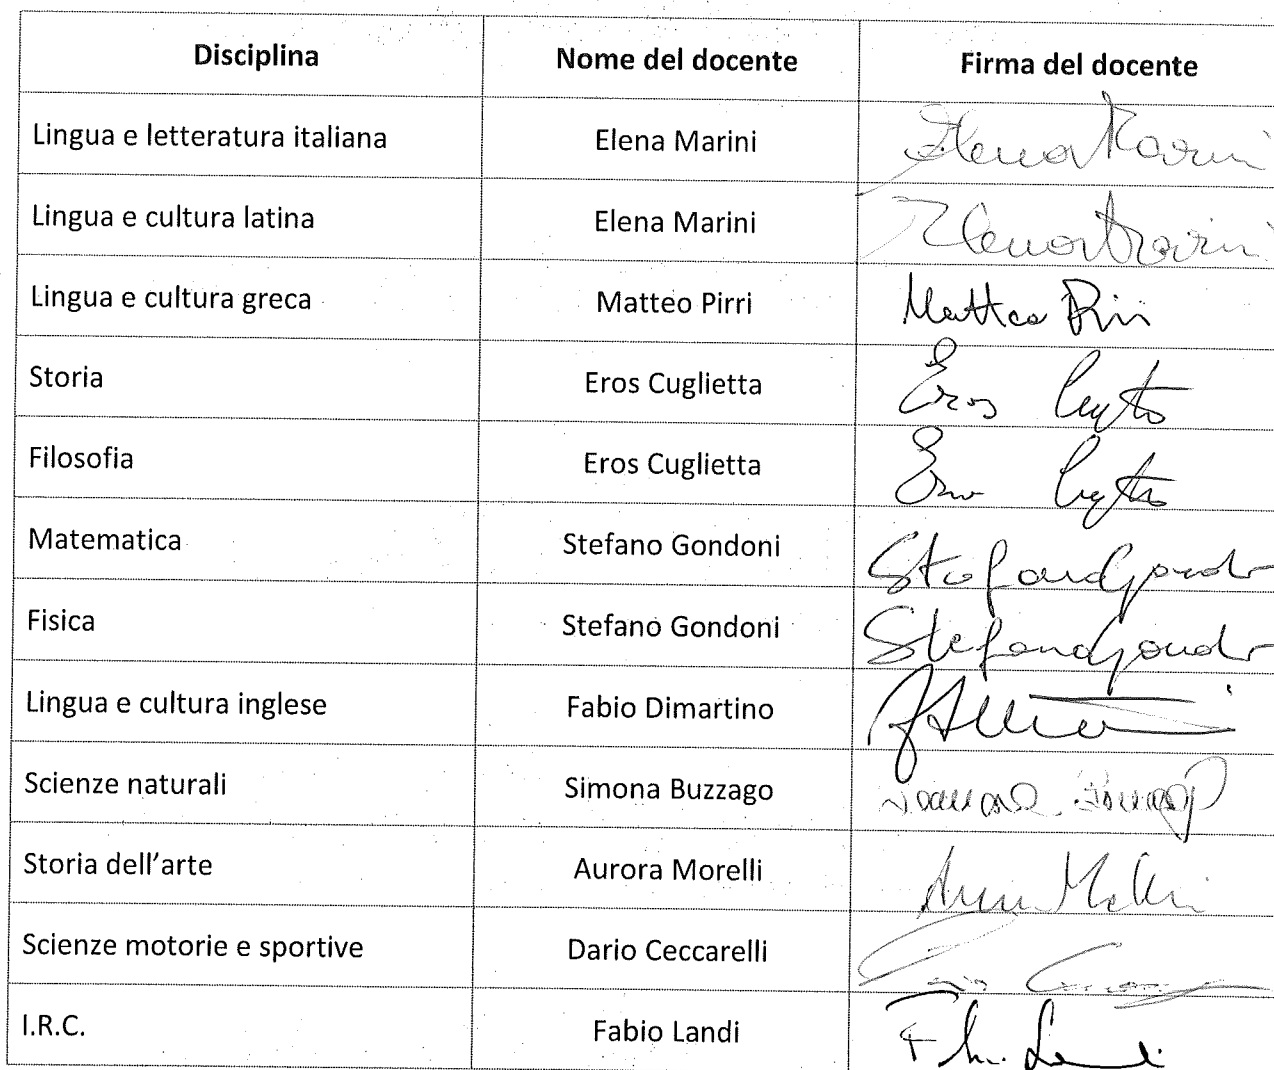 Disciplina Nome del docente Firma del docente
Lingua e letteratura italiana Elena Marini Elena Marini
Lingua e cultura latina Elena Marini Elena Marini
Lingua e cultura greca Matteo Pirri Matteo Pirri
Storia Eros Cuglietta Eros
Filosofia Eros Cuglietta
Matematica Stefano Gondoni Stefano
Fisica Stefano Gondoni Stefano
Lingua e cultura inglese Fabio Dimartino
Scienze naturali Simona Buzzago
Storia dell'arte Aurora Morelli
Scienze motorie e sportive Dario Ceccarelli
I.R.C. Fabio Landi